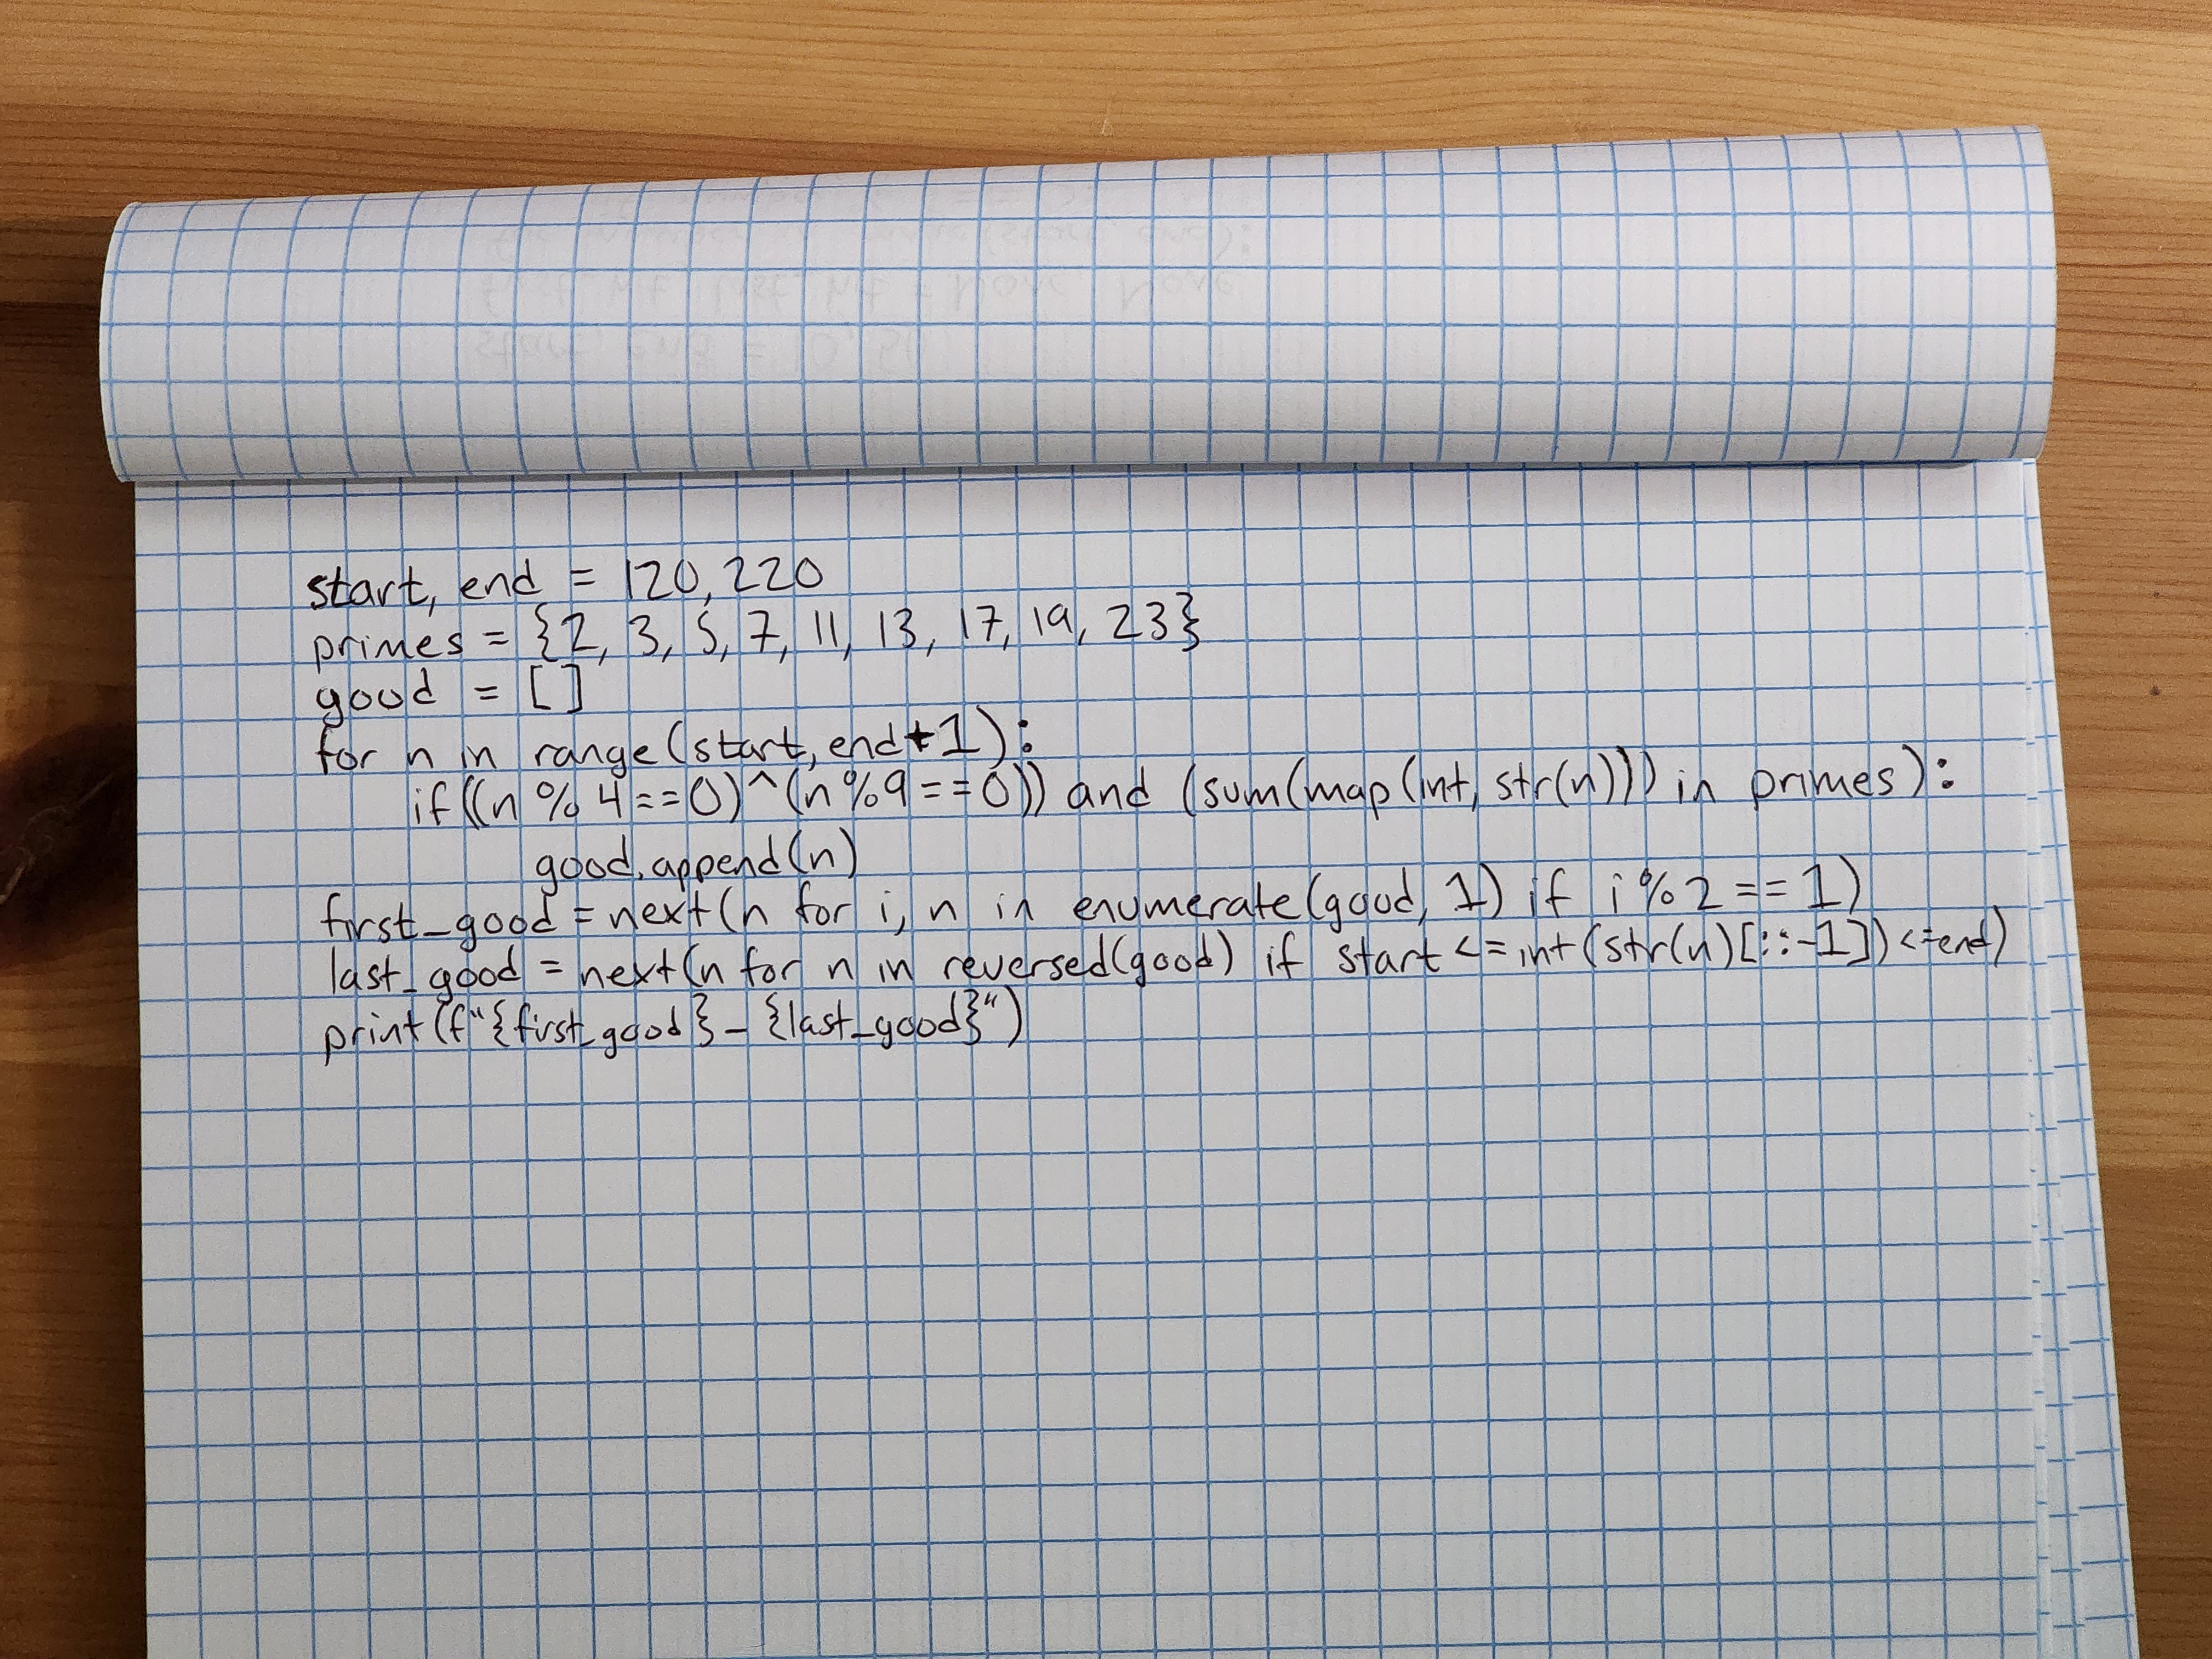 start, end = 120, 220
primes = {2, 3, 5, 7, 11, 13, 17, 19, 23}
good = []
for n in range(start, end+1):
if((n % 4==0)^(n%9==0)) and (sum(map(int, str(n))) in primes):
good.append(n)
first_good = next(n for i, n in enumerate(good, 1) if i%2 == 1)
last_good = next(n for n in reversed(good) if start <= int(str(n)[::-1]) <=end)
print(f"{first_good} - {last_good}")